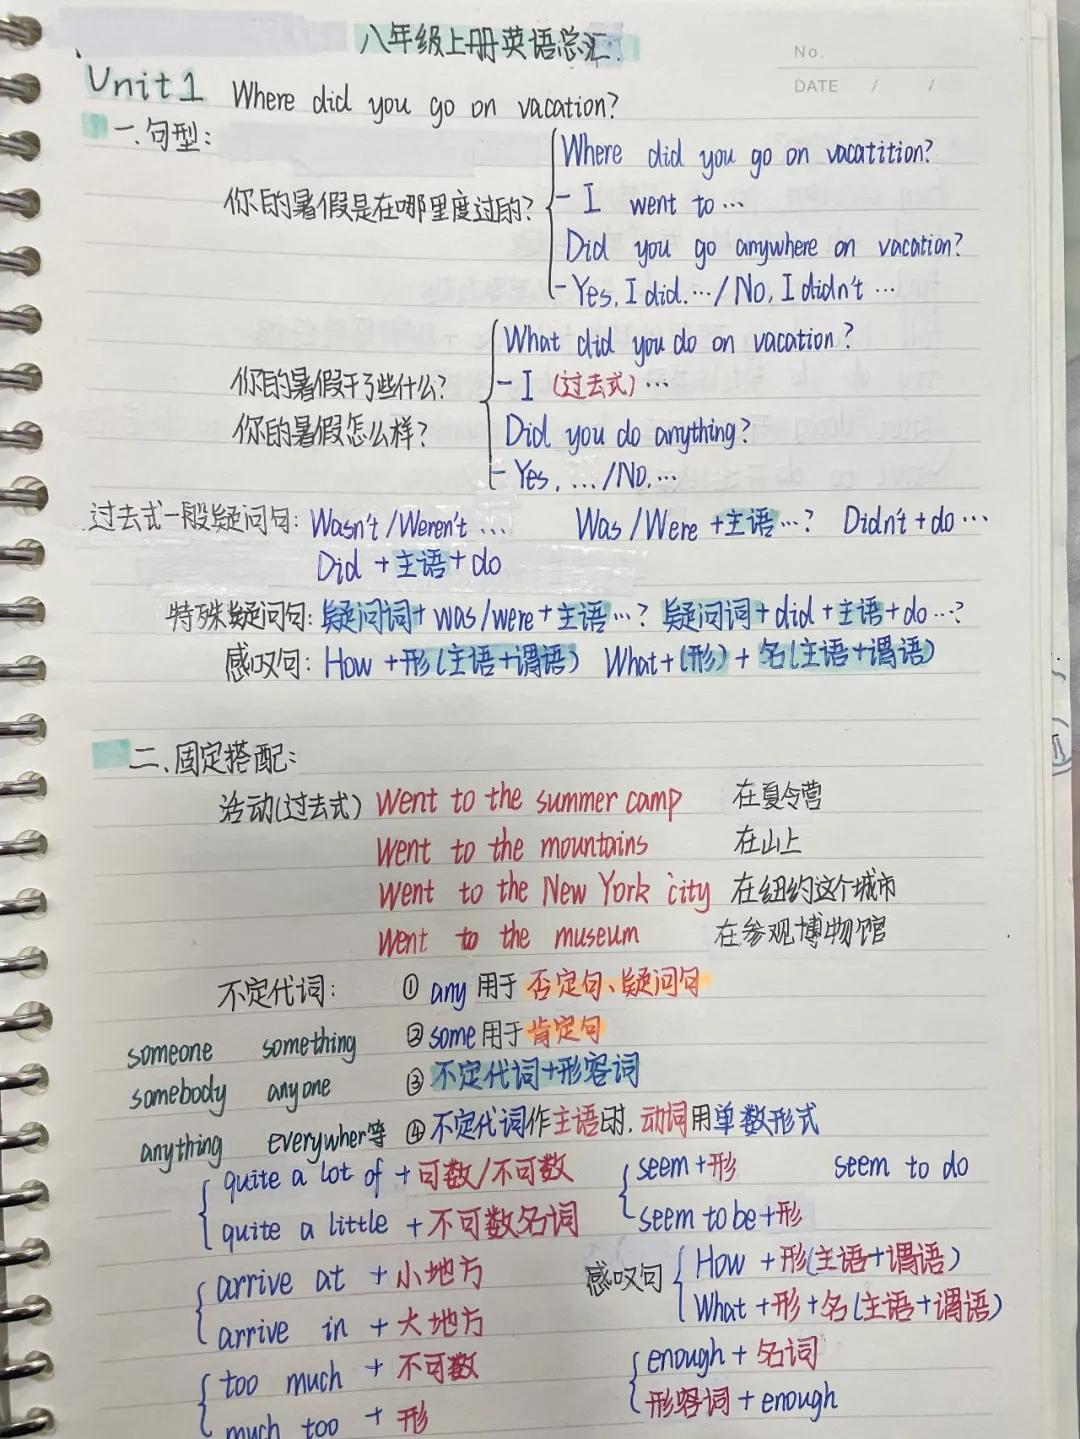 八年级上册英语总汇.
No.
DATE / /
Unit1 Where did you go on vacation?
一.句型:
你的暑假是在哪里度过的?
Where did you go on vacatition?
- I went to …
Did you go anywhere on vacation?
- Yes, I did. … / No, I didn't …
你的暑假干了些什么?
你的暑假怎么样?
What did you do on vacation?
- I (过去式) …
Did you do anything?
- Yes, … /No, …
过去式一般疑问句: Wasn't /Weren't … Was /Were +主语…? Didn't + do …
Did +主语+ do
特殊疑问句: 疑问词+ was/were +主语…? 疑问词+did+主语+do…?
感叹句: How +形(主语+谓语) What+(形)+名(主语+谓语)
二.固定搭配:
活动(过去式) Went to the summer camp 在夏令营
Went to the mountains 在山上
Went to the New York city 在纽约这个城市
Went to the museum 在参观博物馆
不定代词: ① any 用于 否定句、疑问句
someone something ② some用于肯定句
somebody anyone ③ 不定代词+形容词
anything everywher等 ④ 不定代词作主语时,动词用单数形式
quite a lot of + 可数/不可数 seem+形 seem to do
quite a little + 不可数名词 seem to be+形
arrive at + 小地方 感叹句 How +形(主语+谓语)
arrive in + 大地方 What +形+名(主语+谓语)
too much + 不可数 enough + 名词
much too + 形 形容词 + enough